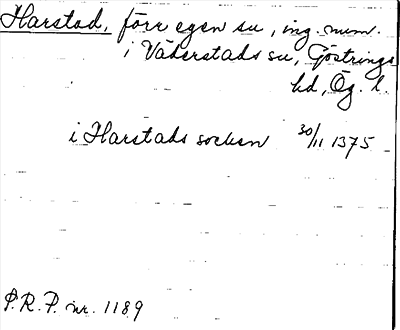 Harstad, förr egen su, ing. num.
i Väderstads su, Göstrings
hd, Ög. l.
i Harstads socken 30/11 1375
P.R.P. nr. 1189